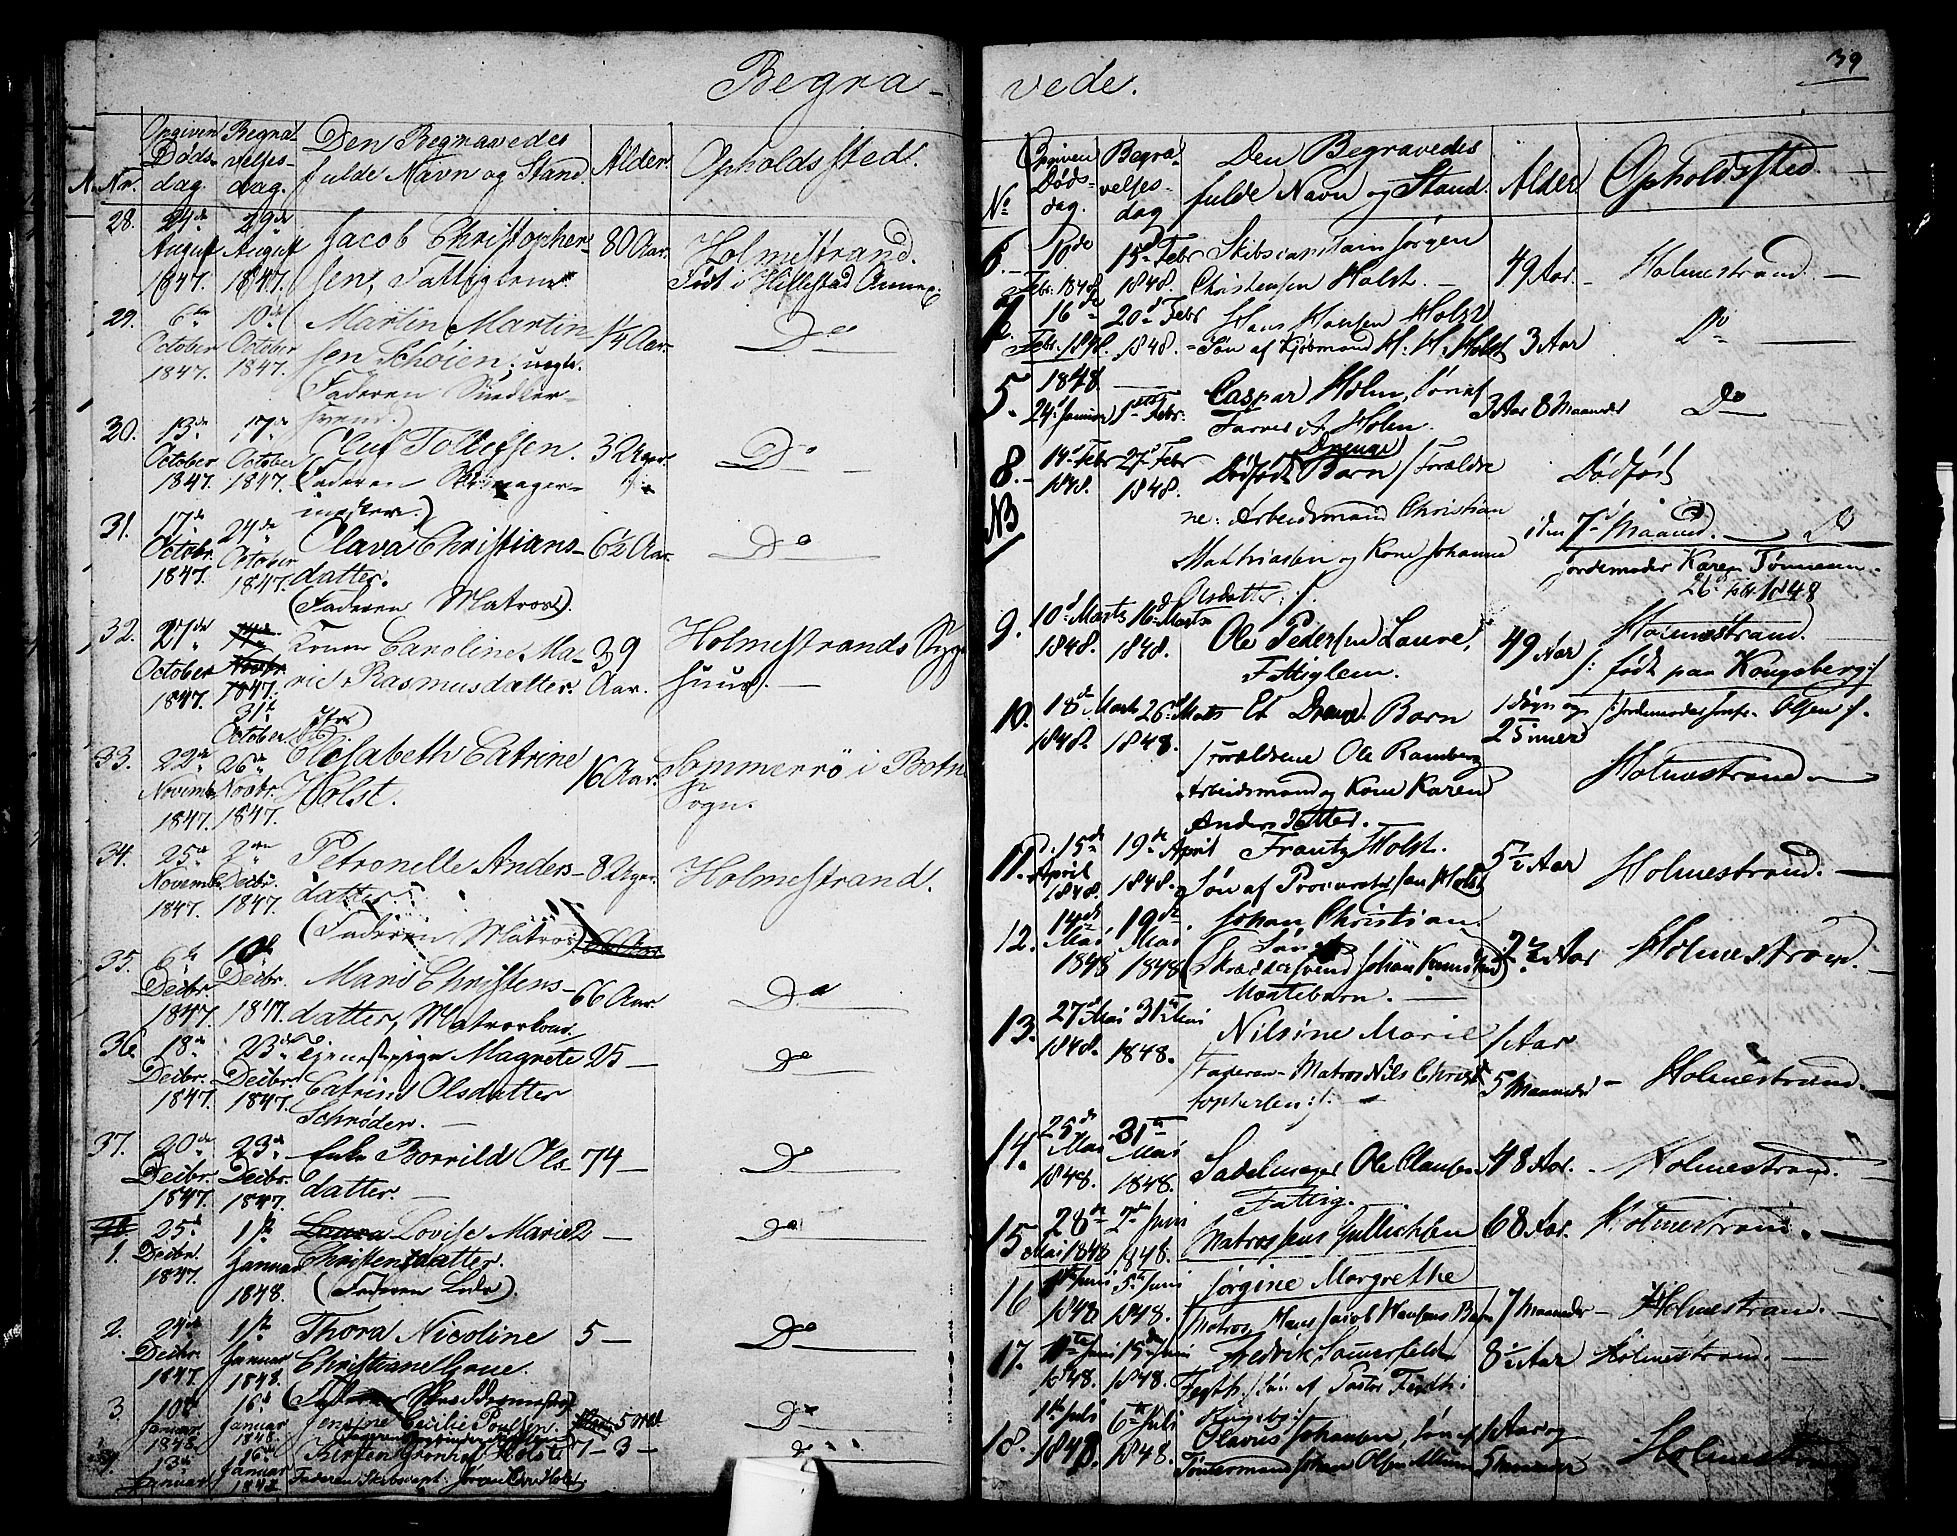 Begra-
Nr.
Opgiven Døds- dag.
Begra- velses- dag.
Den Begravedes fulde Navn og Stand.
Alder.
Opholdssted.
28.
24de August 1847.
29de August 1847.
Jacob Christopher-
sen, Fattiglem
80 Aar.
Holmestrand.
Født i Hillestad Annex.
29.
6te October 1847.
10de October 1847.
Martin Martin-
sen Schøien; uægte.
Faderen Snedker-
svend.
1/4 Aar.
Do
30.
13de October 1847.
17de October 1847.
Oluf Tollefsen.
(Faderen
mester.)
3 Uger.
Do
31.
17de Octobr. 1847.
24de October 1847.
Olava Christians-
datter.
(Faderen Matros).
6½ Aar.
Do
32.
21de October 1847.
31te October
Konen Caroline Ma-
rie Rasmusdatter.
39 Aar.
Holmestrands Syge
huus.
33.
22de Novemb. 1847.
26de Novbr. 1847.
Elisabeth Catrine
Holst.
16 Aar.
Sommerrö i Botne
Sogn.
34.
25de Novemb. 1847.
2den Decbr. 1847.
Petronelle Anders-
datter.
(Faderen Matros)
8 Uger.
Holmestrand.
35.
6te Decbr. 1847.
10de Decbr. 1847.
Maris Christens-
datter, Matroskone.
66 Aar.
Do
36
18de Decbr. 1847.
23de Decbr. 1847.
Tjenestepige Magrete
Catrine Olsdatter
Schrøder.
25
Do
37.
20de Decbr. 1847.
23de Decbr. 1847.
Enke Borrild Ols-
datter.
74
Do
1.
25de Decbr. 1847.
1ste Januar 1848.
Laura Lovise Marie
Christensdatter.
(Faderen Lods).
2
Do
2.
24de Decbr. 1847.
1ste Januar 1848.
Thora Nicoline
Christiane Gone.
5
Do
3.
10de Januar 1848.
16de Januar 1848.
Jensine Cecilie Poulsen.
5
Do
4.
13de Januar
16de Januar 1848
Kirsten Holst
Faderen Skibscapt. Jørgen Chr Holst
7 - 3
Do
vede.
39
No
Opgiven Døds- dag.
Begra- velses- dag
Den Begravedes fulde Navn og Stand.
Alder
Opholdssted.
6.
10de Febr. 1848
15de Febr 1848.
Skibscapitain Jørgen
Christensen Holst.
49 Aar.
Holmestrand.
7.
16de Febr. 1848.
20de Febr 1848.
Hans Hansen Holst
Søn af Kjøbmand H. H. Holst
3 Aar
Do
5.
1848.
24de Januar
1ste Febr.
Caspar Holm, Søn af
Farver A. Holm.
3 Aar 8 Maaneder
Do
8.
NB
14de Febr 1848.
27de Febr 1848.
Dødfødt Drenge Barn /: Forældre
ne: Arbeidsmand Christian
Mathiasen og Kone Johanne
Olsdatter :/.
Dødfødt
i den 7de Maaned. Do
Jordemoder Karen Tønnesen.
26de Febr 1848
9.
10de Marts 1848.
16de Marts 1848.
Ole Pedersen Laure,
Fattiglem.
49 Aar
Holmestrand.
/: født paa Kongsberg :/
10.
18de Marts 1848.
26de Marts 1848.
Et Drenge Barn
/: Forældrene Ole Ramberg
Arbeidsmand og Kone Karen
Anders Datter.
1 Døgn og
2 Timer
/: Jordemoder Jomfr. Olsen :/.
Holmestrand.
11.
15de April 1848.
19de April 1848.
Frantz Holst.
Søn af Procurator Holst
5½ Aar
Holmestrand.
12.
14de Mai 1848
19de Mai 1848
Johan Christian.
Søn af
(Skræddersvend Johan
2½ Aar
Holmestrand.
13.
27de Mai 1848.
31te Mai 1848.
Nilsine Marie
/: Faderen Matros Nils Christ
tophersen :/.
1 Aar
5 Maaneder
Holmestrand.
14.
25de Mai 1848.
31te Mai 1848.
Sadelmager Ole Clausen
Fattig.
48 Aar.
Holmestrand.
15
28de Mai 1848
2den Juni 1848.
Matros Jens Gullichsen
68 Aar.
Holmestrand.
16
1ste Juni 1848
5te Juni 1848.
Jørgine Margrethe
/: Matros Hans Jacob Hansens Barn
7 Maaneder
Holmestrand.
17.
11te Juni 1848.
15de Juni 1848.
Fredrik Sommerfeldt
Søn af Pastor
8½ Aar
Holmestrand.
18.
1ste Juli 1848.
6te Juli 1848.
Olavus Johansen, Søn af
Tømmermand Johan Olsen
1 Aar og
5 Maaneder
Holmestrand